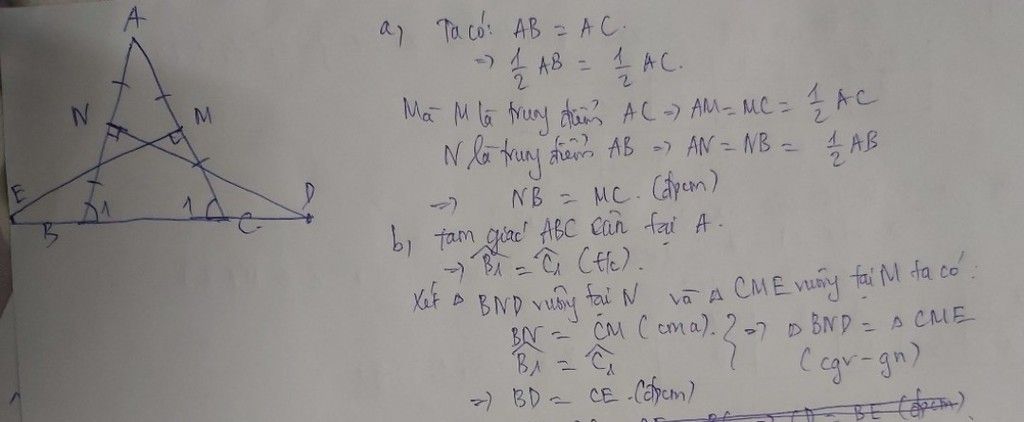 A
N
M
E
D
B
1
1
C
a, Ta có: AB = AC.
=> 1/2 AB = 1/2 AC.
Mà M là trung điểm AC => AM = MC = 1/2 AC
N là trung điểm AB => AN = NB = 1/2 AB
=> NB = MC. (đpcm)
b, tam giác ABC cân tại A.
=> B̂1 = Ĉ1 (t/c).
Xét △ BND vuông tại N và △ CME vuông tại M ta có:
BN = CM (cma). } => △ BND = △ CME
B̂1 = Ĉ1 (cgv - gn)
=> BD = CE. (đpcm)
=> CD = BE (đpcm)